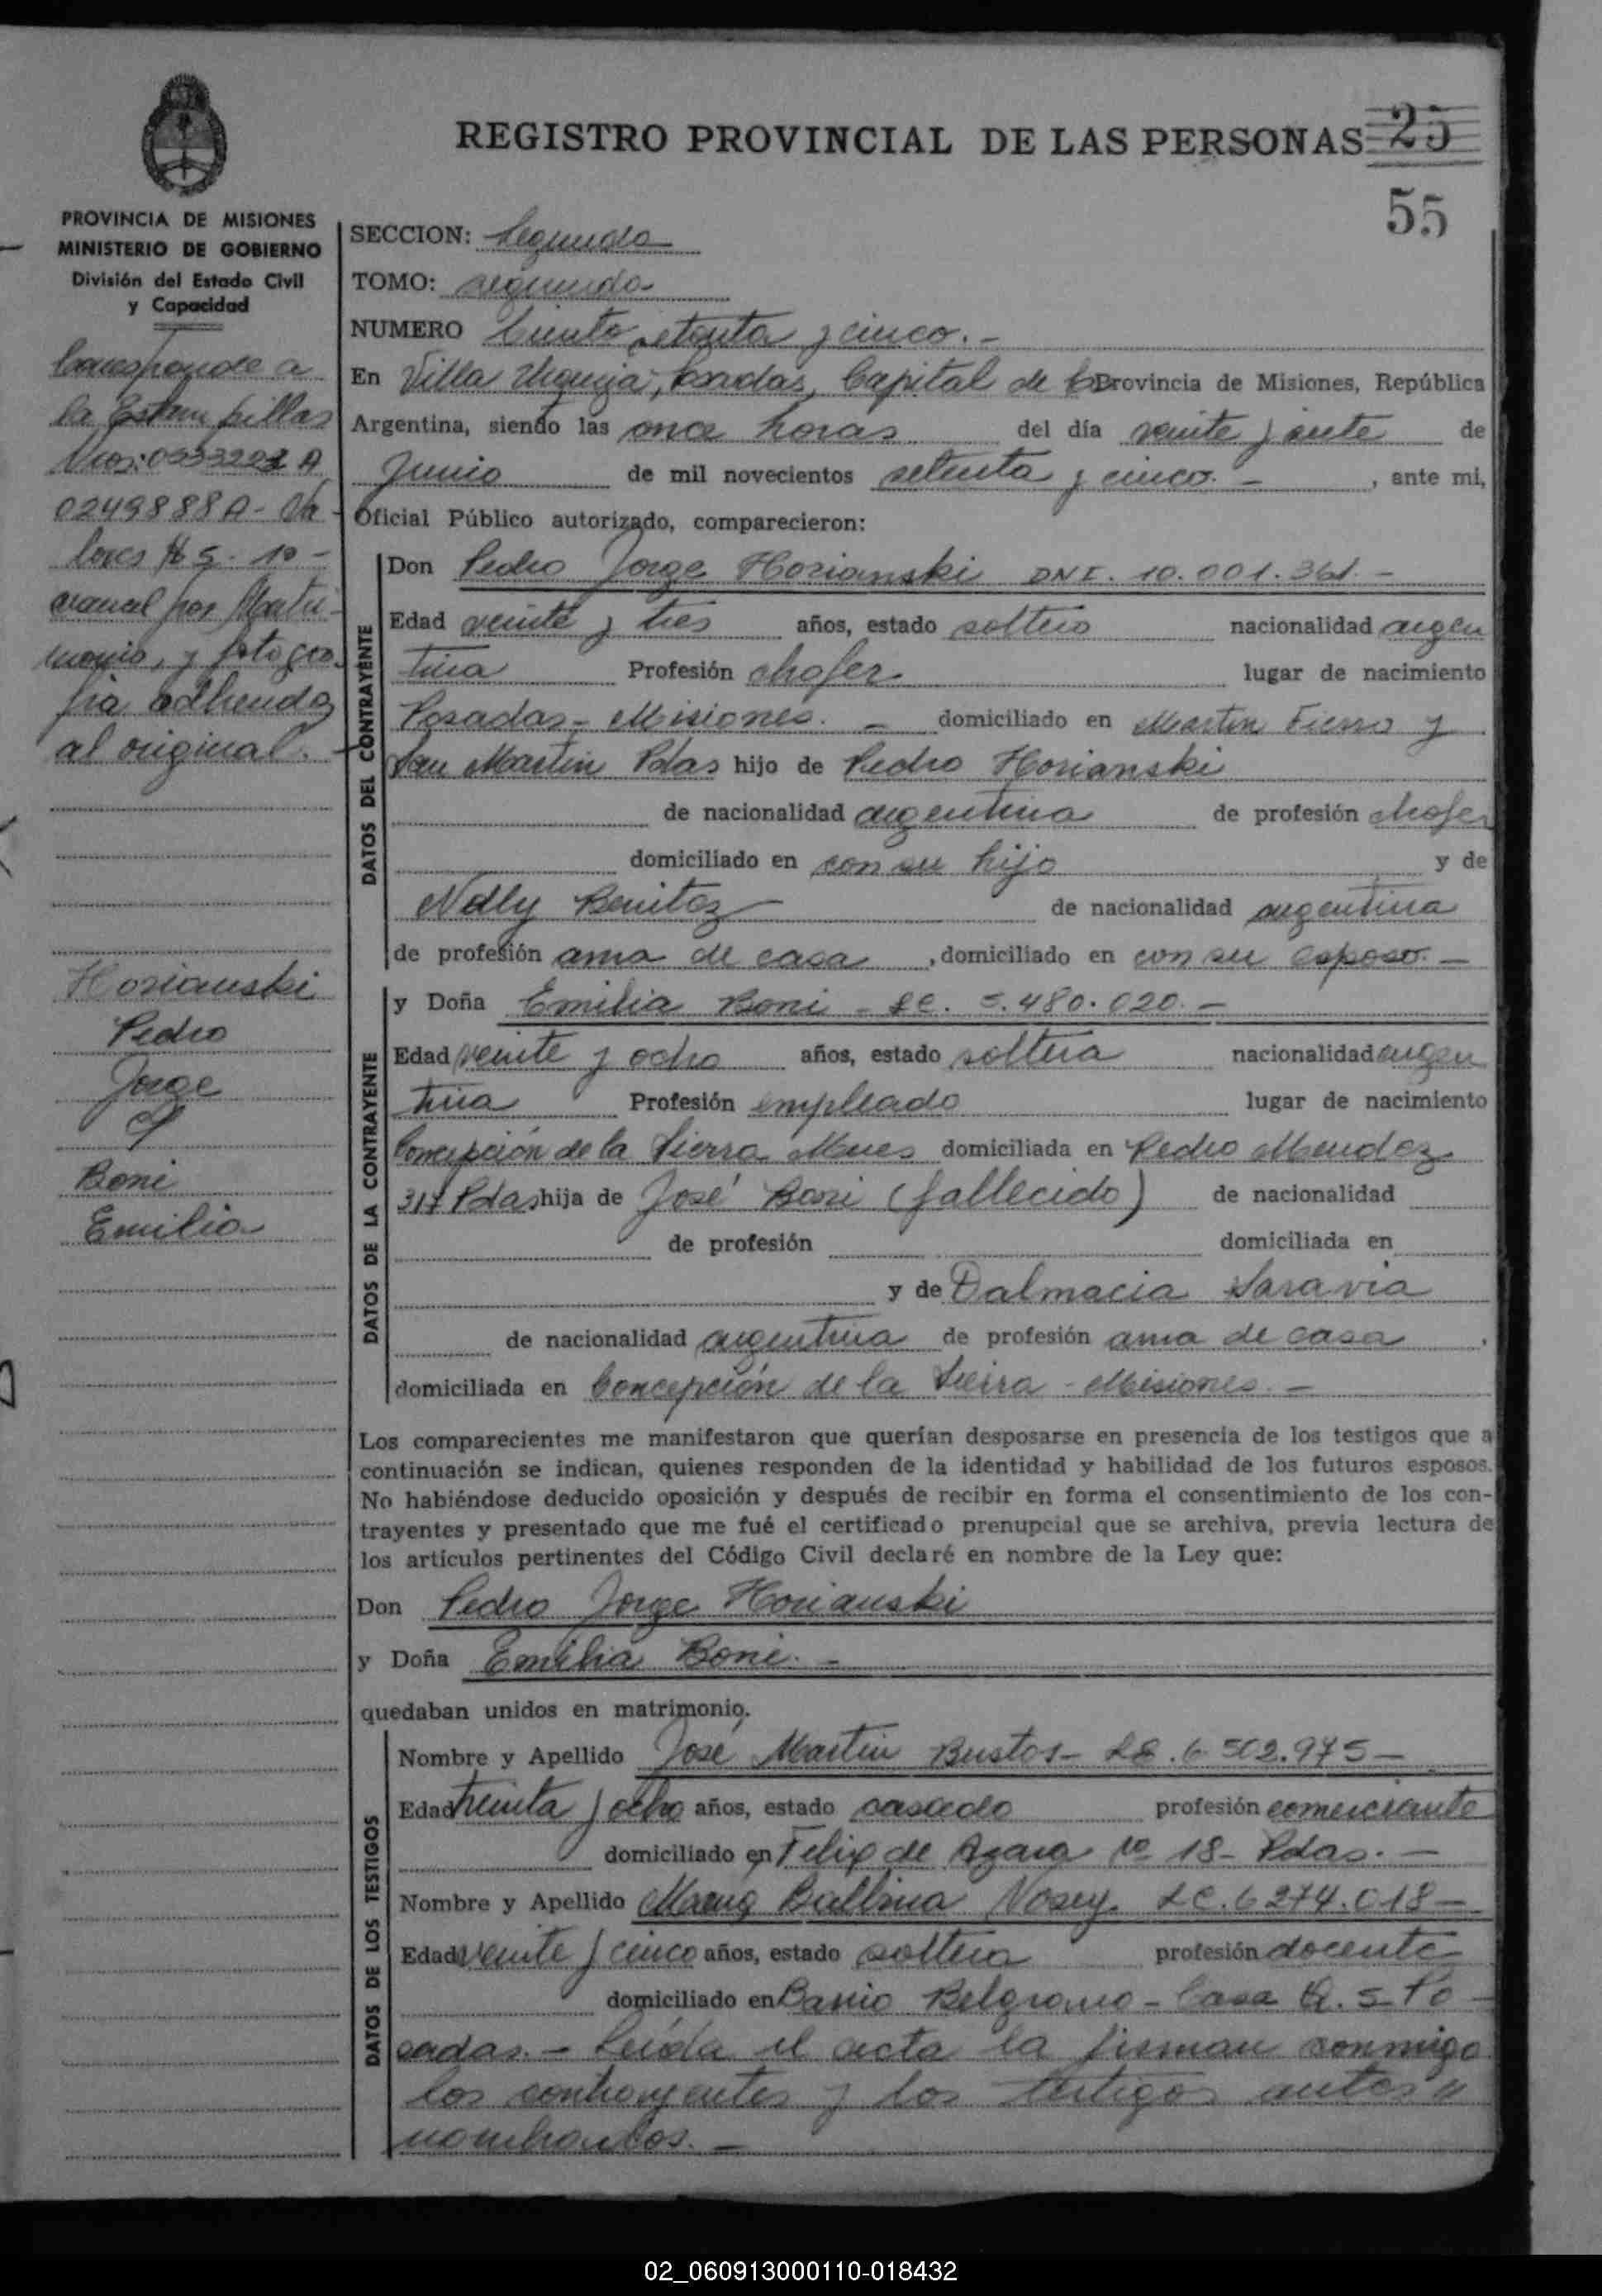 REGISTRO PROVINCIAL DE LAS PERSONAS 25
55
PROVINCIA DE MISIONES
MINISTERIO DE GOBIERNO
División del Estado Civil
y Capacidad
Corresponde a
la Estampillas
Nros: A
0249888A - Va
lores $ 5 - 10 -
arancel por Matri
monio, y fotogra
fia adherida
al original.
Horianski
Pedro
Jorge
y
Boni
Emilia
SECCION: Segunda
TOMO: segundo
NUMERO Ciento setenta y cinco. -
En Villa Urquiza, Posadas, Capital de la Provincia de Misiones, República
Argentina, siendo las once horas del día veinte y siete de
Junio de mil novecientos setenta y cinco. - , ante mi,
Oficial Público autorizado, comparecieron:
DATOS DEL CONTRAYENTE
Don Pedro Jorge Horianski DNI. 10.001.361. -
Edad veinte y tres años, estado soltero nacionalidad argen
tina Profesión chofer lugar de nacimiento
Posadas - Misiones. - domiciliado en Martin Fierro y
San Martin Pdas hijo de Pedro Horianski
de nacionalidad argentina de profesión chofer
domiciliado en con su hijo y de
Nelly Benitez de nacionalidad argentina
de profesión ama de casa , domiciliado en con su esposo. -
DATOS DE LA CONTRAYENTE
y Doña Emilia Boni - LC. 5.480.020. -
Edad veinte y ocho años, estado soltera nacionalidad argen
tina Profesión empleado lugar de nacimiento
Concepción de la Sierra Mnes domiciliada en Pedro Mendez
317 Pdas hija de José Boni (fallecido) de nacionalidad
de profesión domiciliada en
y de Dalmacia Saravia
de nacionalidad argentina de profesión ama de casa .
domiciliada en Concepción de la Sierra - Misiones. -
Los comparecientes me manifestaron que querían desposarse en presencia de los testigos que a
continuación se indican, quienes responden de la identidad y habilidad de los futuros esposos.
No habiéndose deducido oposición y después de recibir en forma el consentimiento de los con-
trayentes y presentado que me fué el certificado prenupcial que se archiva, previa lectura de
los artículos pertinentes del Código Civil declaré en nombre de la Ley que:
Don Pedro Jorge Horianski
y Doña Emilia Boni. -
quedaban unidos en matrimonio.
DATOS DE LOS TESTIGOS
Nombre y Apellido José Martin Bustos - LE. 6.502.975 -
Edad treinta y ocho años, estado casado profesión comerciante
domiciliado en Felix de Azara no 18 - Pdas. -
Nombre y Apellido Ballina LC. 6274.018 -
Edad veinte y cinco años, estado soltera profesión docente
domiciliado en Barrio Belgrano - Casa 5 Po
sadas. - Leída el acta la firman conmigo
los contrayentes y los testigos antes "
nombrados. -
02_060913000110-018432